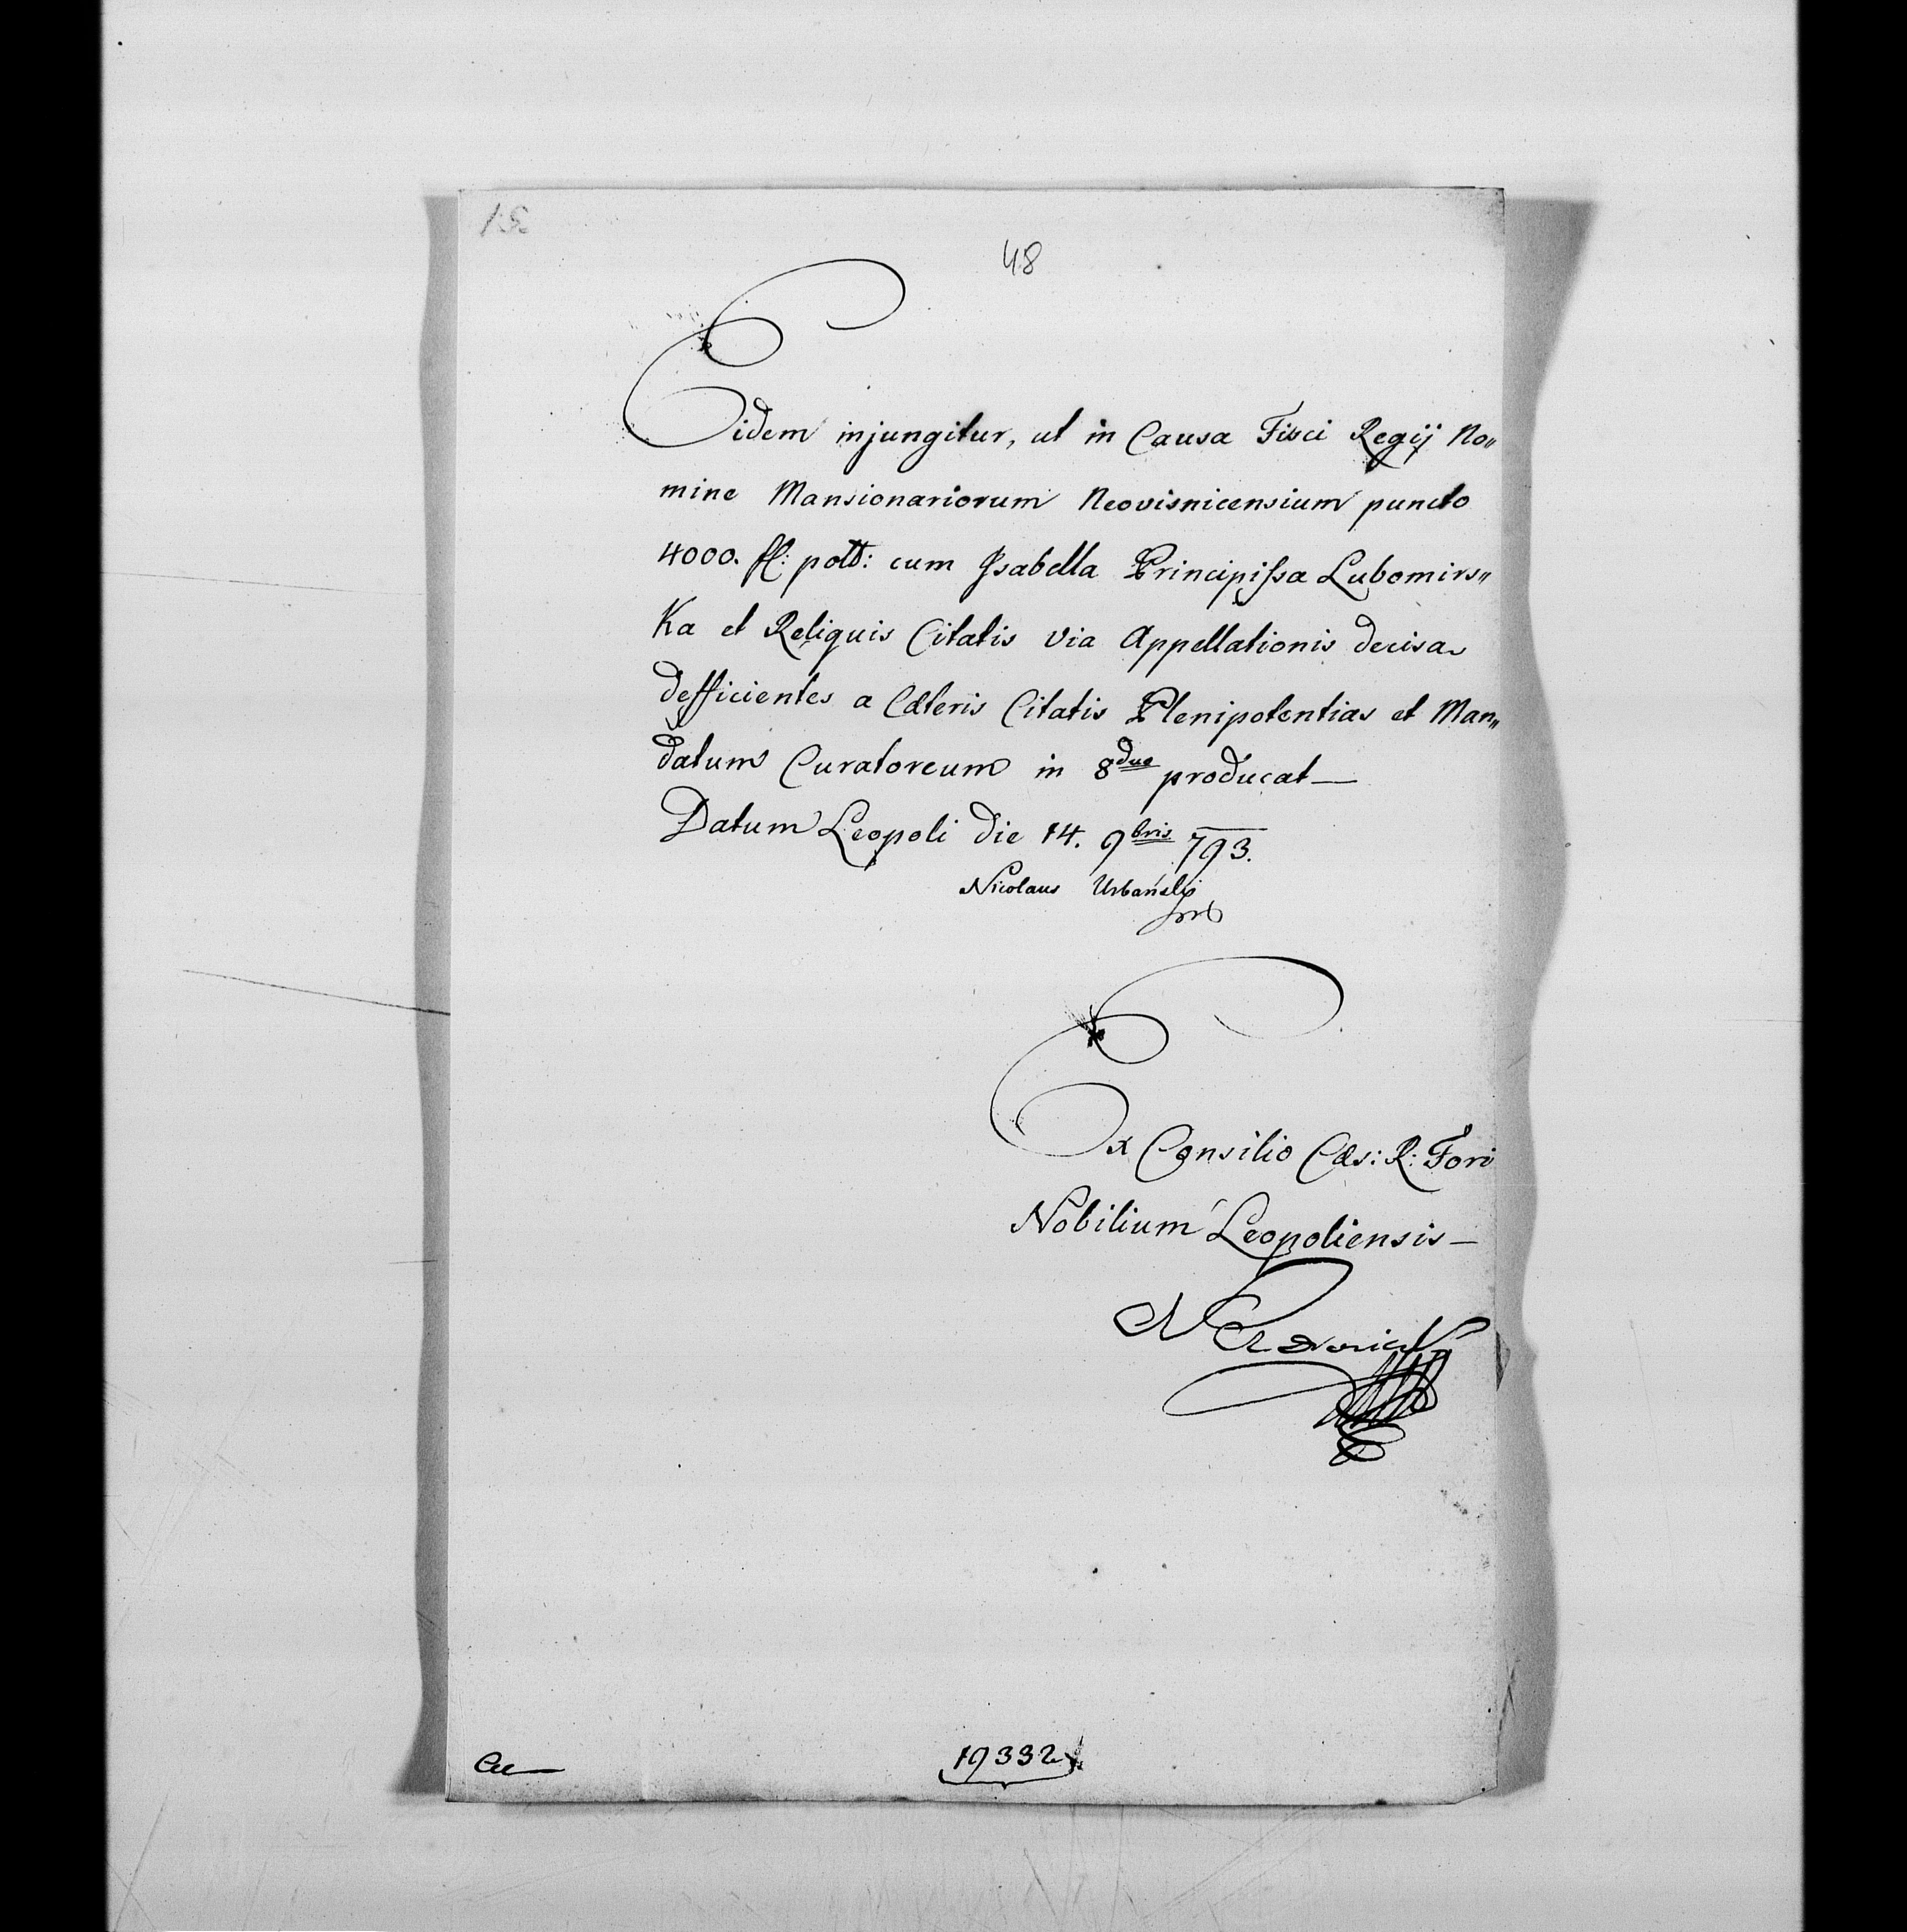 48
Eidem injungitur, ut in Causa Fisci Regij No〃
mine Mansionariorum Neovisnicensium puncto
4000. fl: poltt: cum Isabella Principissa Lubomirs〃
Ka et Reliquis Citatis via Appellationis decisa
defficientes a Cæteris Citatis Plenipotentias et Man〃
datum Curatoreum in 8duo producat—
Datum Leopoli die 14. 9bris 793.
Nicolaus Urbański
Ex Consilio Cæs: R: Fori
Nobilium Leopoliensis—
19332